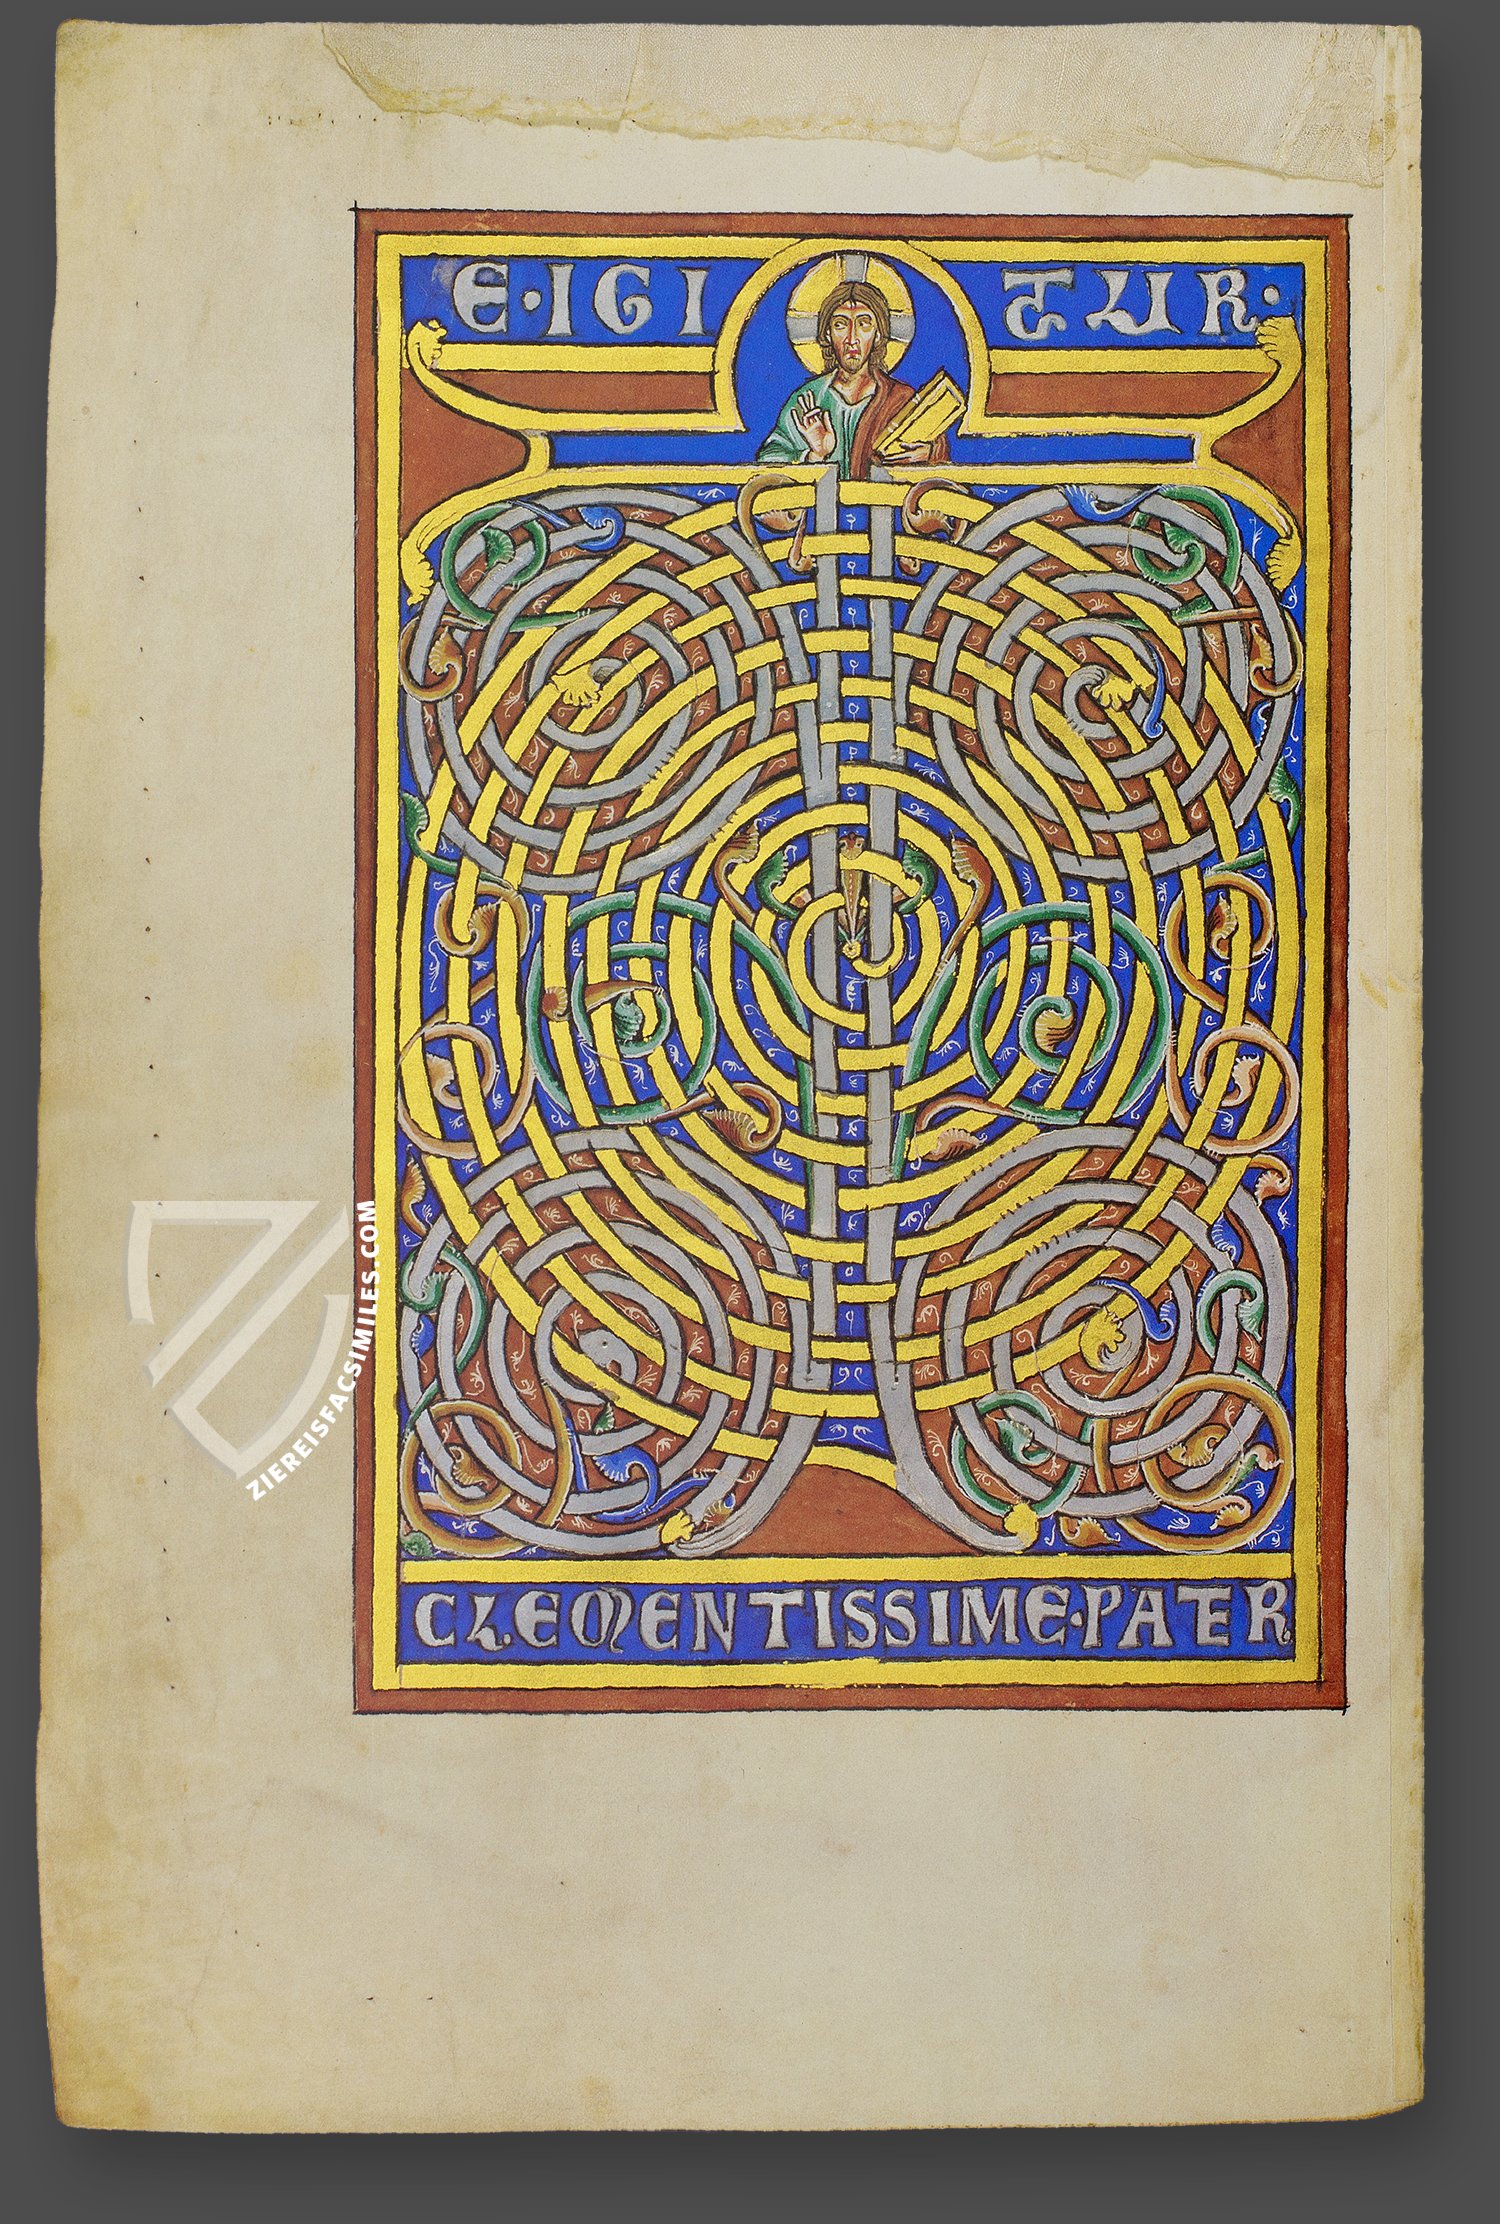 E·IGI TUR·
CLEMENTISSIME·PATER
ZIEREISFACSIMILES.COM